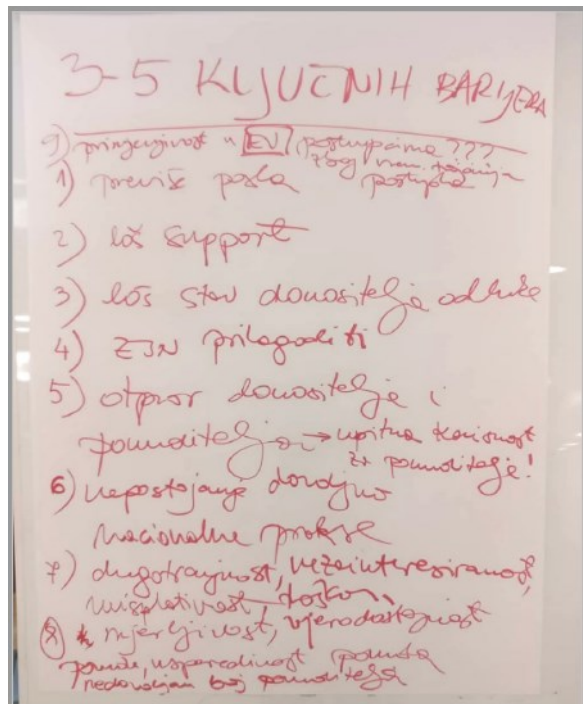 3-5 KLJUČNIH BARIJERA
9) primjenjivost u EV postupcima ???
zbog vrem. trajanja
1) previše posla postupka
2) loš support
3) loš stav donositelja odluke
4) ZJN prilagoditi
5) otpor donositelja i
ponuditelja → upitna korisnost
za ponuditelje!
6) nepostojanje dovoljno
nacionalne prakse
7) dugotrajnost, nezainteresiranost,
neisplativost, trošk
8) mjerljivost, vjerodostojnost
ponude, usporedivost ponuda
nedovoljan broj ponuditelja